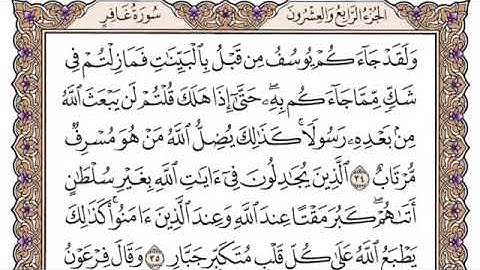 سُورَةُ غَافِرٍ الجُزءُ الرَّابِعُ وَالعِشْرُون
وَلَقَدْ جَاءَكُمْ يُوسُفُ مِن قَبْلُ بِالْبَيِّنَٰتِ فَمَا زِلْتُمْ فِي
شَكٍّ مِّمَّا جَاءَكُم بِهِۦ حَتَّىٰٓ إِذَا هَلَكَ قُلْتُمْ لَن يَبْعَثَ ٱللَّهُ
مِنۢ بَعْدِهِۦ رَسُولًا ۚ كَذَٰلِكَ يُضِلُّ ٱللَّهُ مَنْ هُوَ مُسْرِفٌ
مُّرْتَابٌ ٣٤ ٱلَّذِينَ يُجَٰدِلُونَ فِيٓ ءَايَٰتِ ٱللَّهِ بِغَيْرِ سُلْطَٰنٍ
أَتَىٰهُمْ ۖ كَبُرَ مَقْتًا عِندَ ٱللَّهِ وَعِندَ ٱلَّذِينَ ءَامَنُوا۟ ۚ كَذَٰلِكَ
يَطْبَعُ ٱللَّهُ عَلَىٰ كُلِّ قَلْبِ مُتَكَبِّرٍ جَبَّارٍ ٣٥ وَقَالَ فِرْعَوْنُ